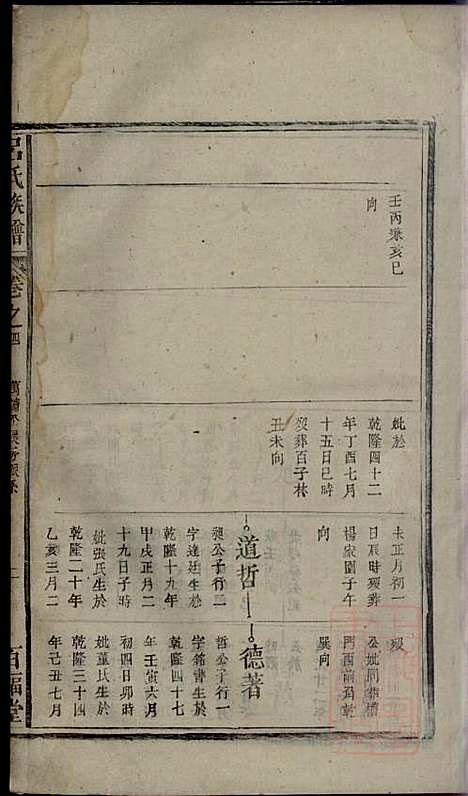 壬丙兼亥巳
向
妣於
乾隆四十二
年丁酉七月
十五日巳時
歿葬百子林
丑未向
未正月初一
日辰時歿葬
楊家園子午
向
道哲
昶公子行二
字達廷生於
乾隆十九年
甲戌正月二
十九日子時
妣張氏生於
乾隆二十年
乙亥三月二
歿
公妣同葬橫
門酉兩爲乾
巽向
德著
哲公子行一
字銘書生於
乾隆四十七
年壬寅六月
初四日卯時
妣董氏生於
乾隆三十四
年己丑七月
呂氏族譜
卷之四
百福堂